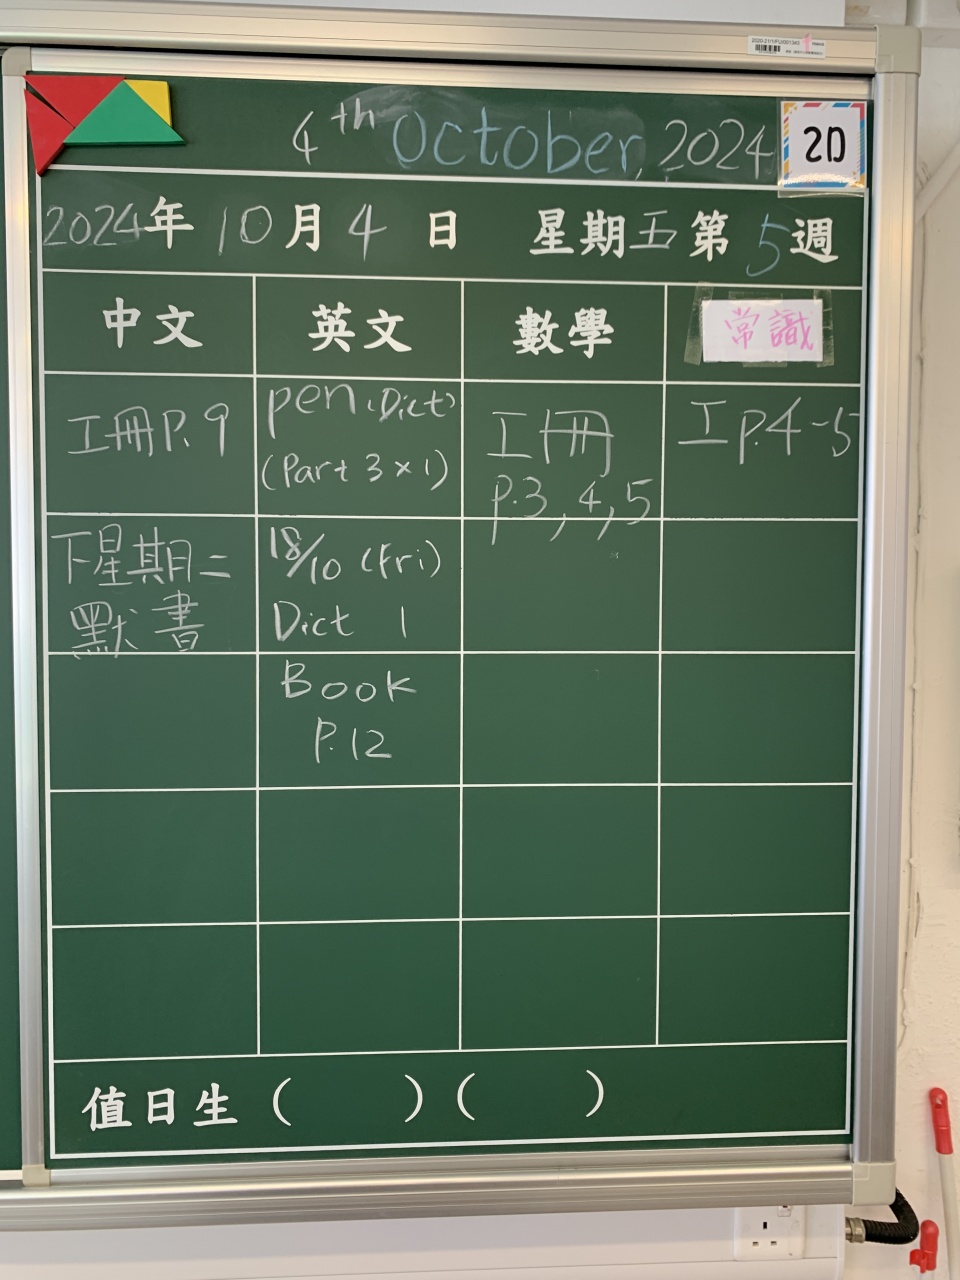 2020-21/1/FU/001343
4th October, 2024
2D
2024年 10月 4 日 星期五第5週
中文 英文 數學 常識
工冊P.9
pen (Dict)
(Part 3 x 1)
工冊
p.3, 4, 5
工p.4-5
下星期二
默書
18/10 (Fri)
Dict 1
Book
P.12
值日生 ( ) ( )